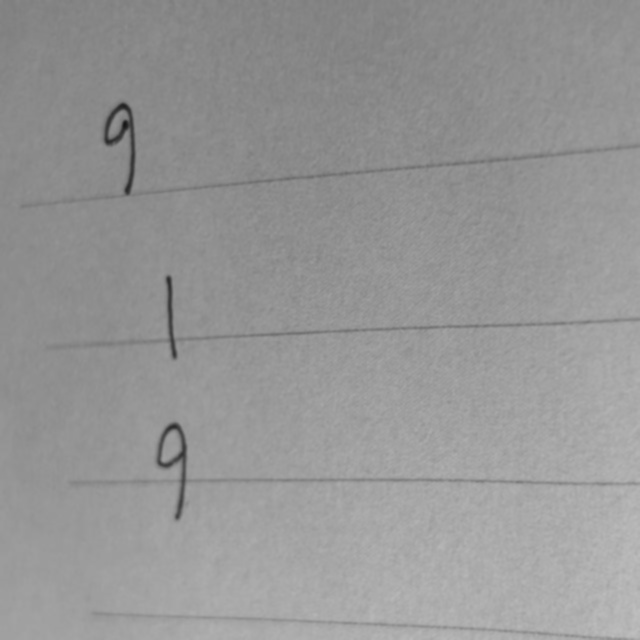 9
1
9